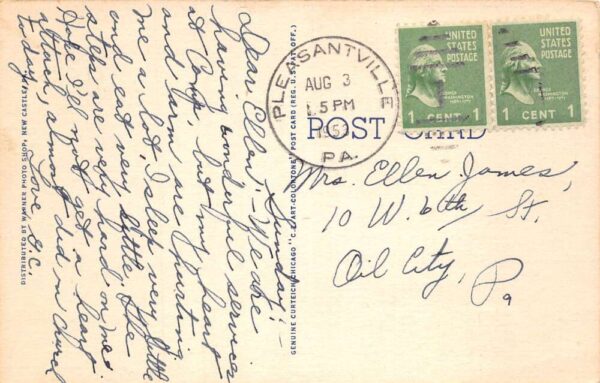 Sunday:-
Dear Ellen:- We are
having wonderful services
at Camp, but my heart
and arm are hurting
me a lot, I sleep very little
and eat very little. The
steps are very hard on me.
Hope I'll not get a heart
attack, almost did in church
today.
Love, S.C.
DISTRIBUTED BY WARNER PHOTO SHOP, NEW CASTLE, PA.
GENUINE CURTEICH-CHICAGO "C.T. ART-COLORTONE" POST CARD (REG. U.S. PAT. OFF.)
PLEASANTVILLE
AUG 3
5 PM
PA.
UNITED
STATES
POSTAGE
1 CENT 1
UNITED
STATES
POSTAGE
1 CENT 1
POST CARD
Mrs. Ellen James,
10 W. 6th St.
Oil City, Pa